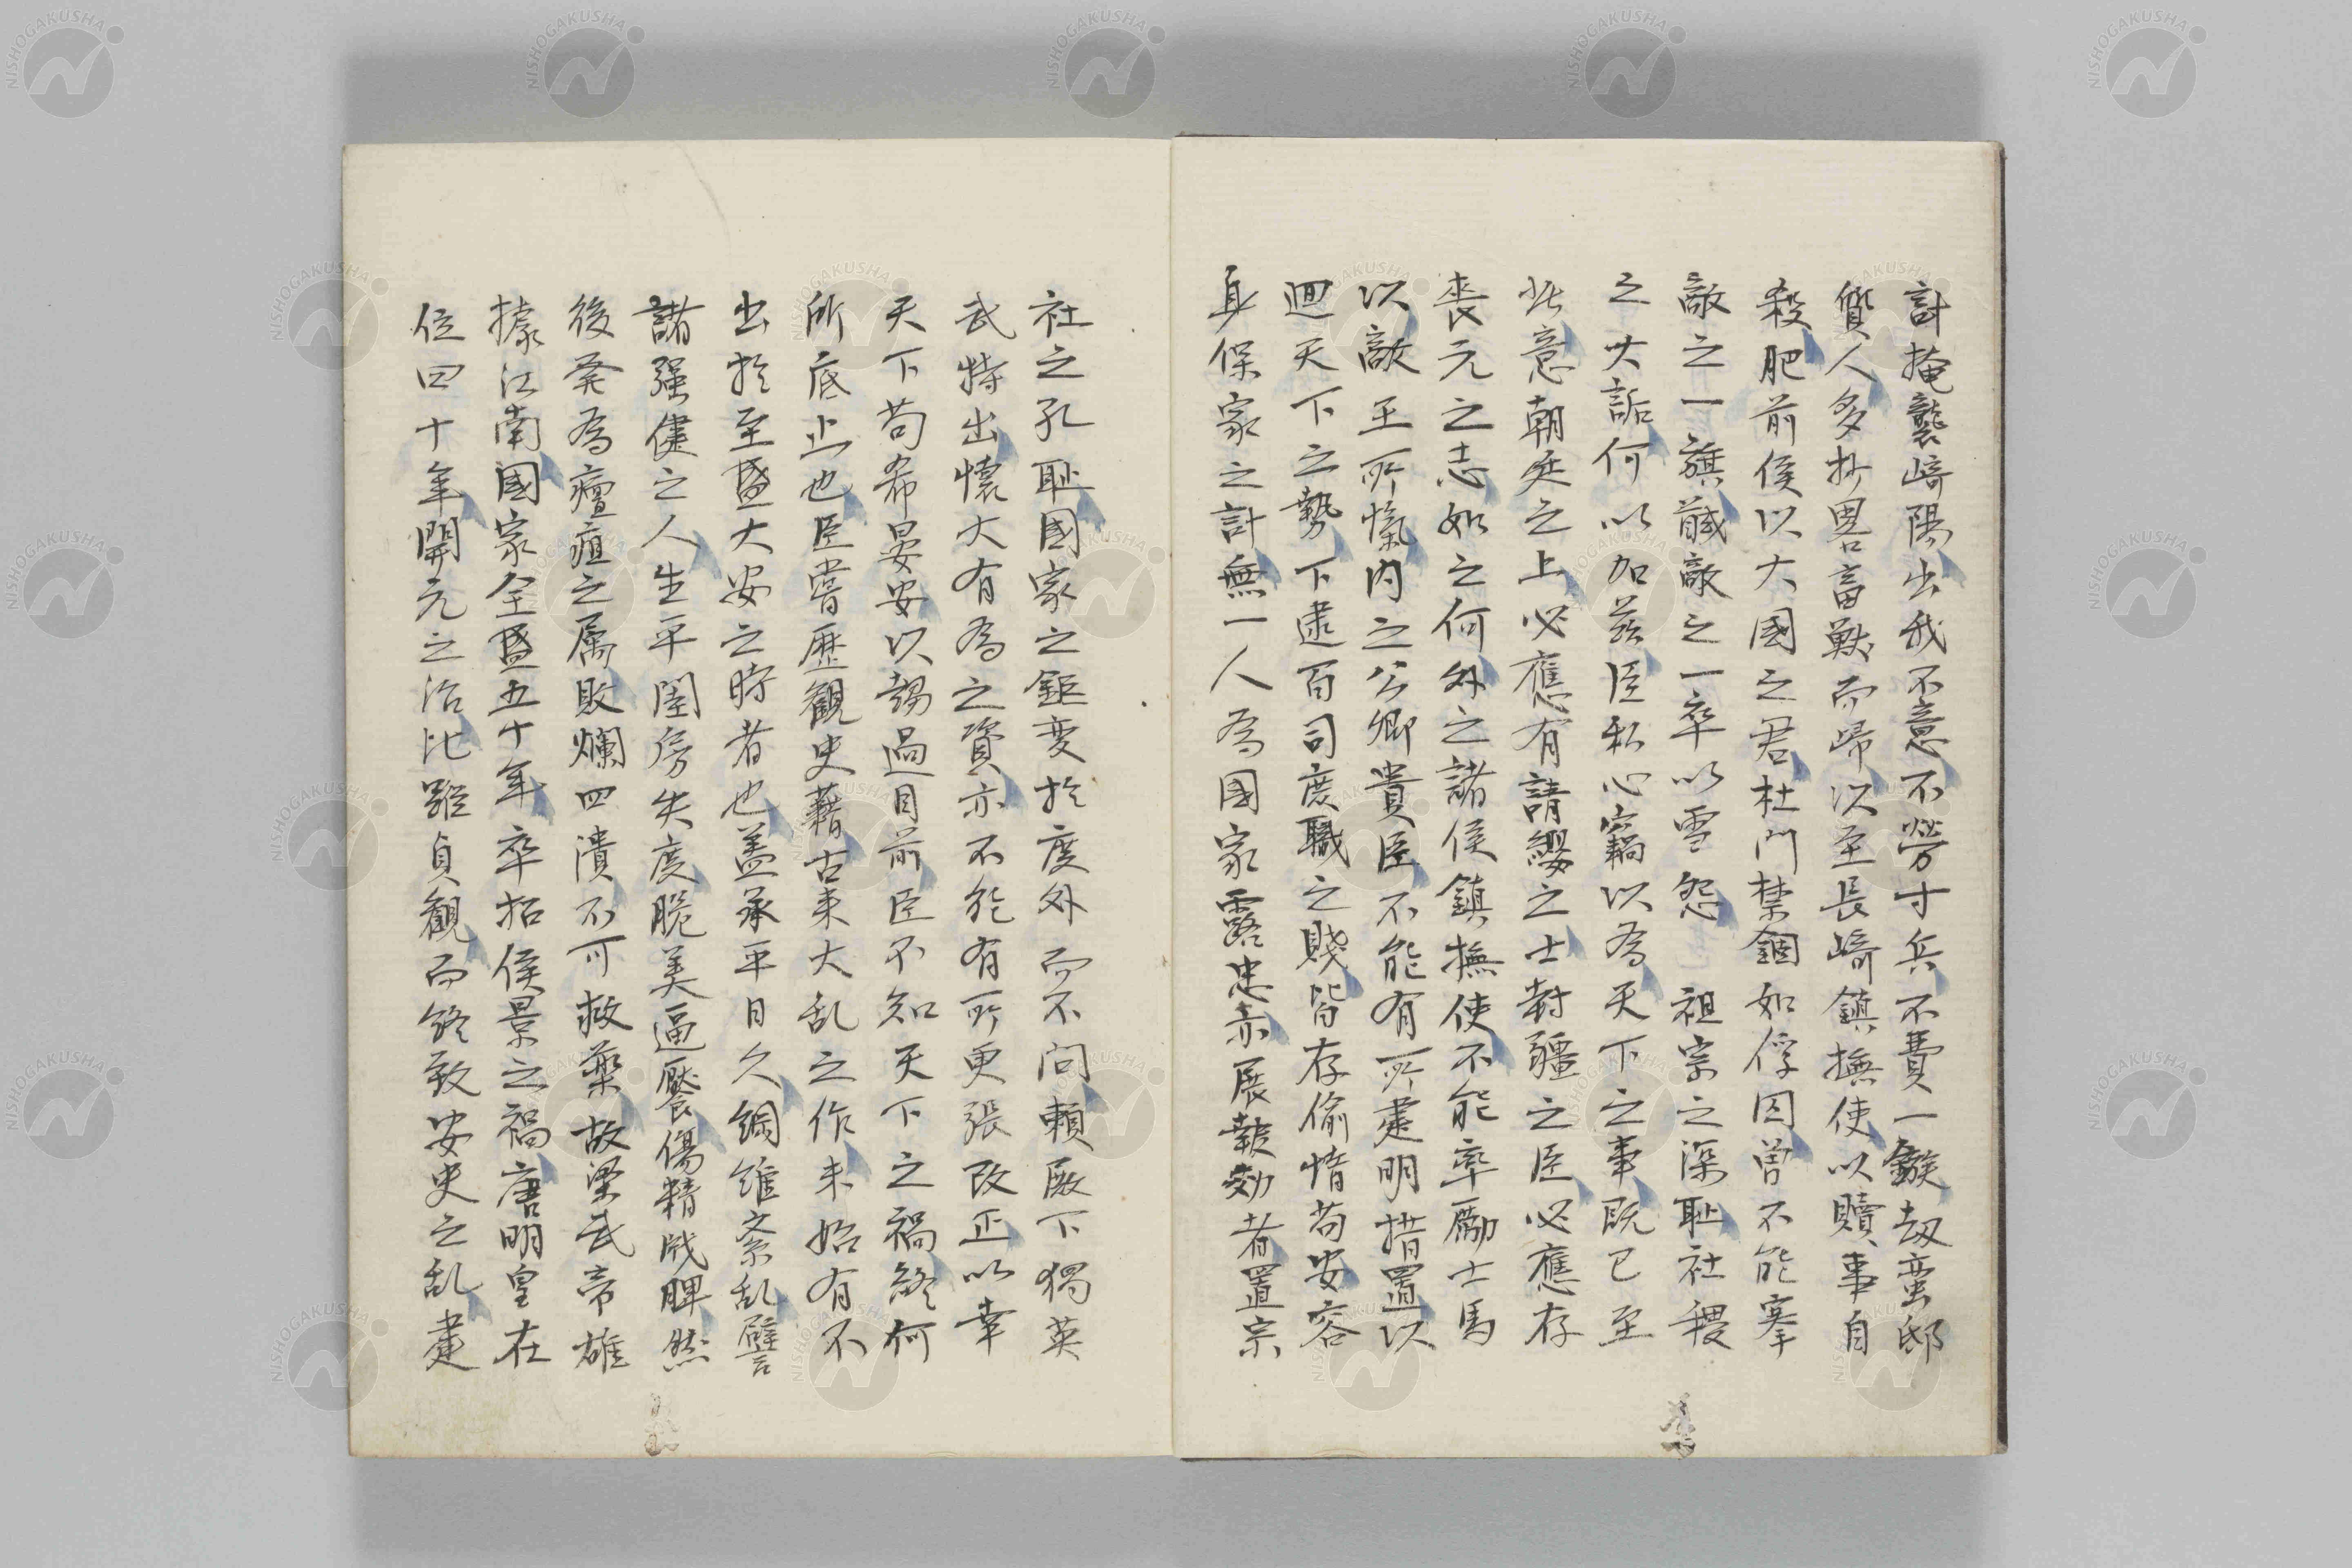 計掩襲崎陽出我不意不勞寸兵不費一鏃劫蛮邸
質人多抄畧畜獣而帰以至長崎鎮撫使以贖事自
殺肥前侯以大國之君杜門禁錮如俘囚曽不能搴
敵之一旗馘敵之一卒以雪怨 祖宗之深恥社稷
之大詬何以加茲臣私心竊以為天下之事既已至
此意朝廷之上必應有請纓之士封疆之臣必應存
喪元之志如之何外之諸侯鎮撫使不能率勵士馬
以敵王所愾内之公卿貴臣不能有所建明措置以
迴天下之勢下逮百司庶職之賤皆存偷惰苟安容
身保家之計無一人為國家露忠赤展報効者置宗
社之孔恥國家之鉅変於度外而不問頼殿下獨英
武特出懐大有為之資亦不能有所更張改正以幸
天下苟希晏安以朂過目前臣不知天下之禍終何
所底止也臣嘗歴觀史藉古来大乱之作未始有不
出於至盛大安之時者也盖承平日久綱維紊乱譬
諸强健之人生平閨房失度脆美逼饜傷精戕脾然
後発為癰疽之属敗爛四潰不可救薬故梁武帝雄
據江南國家全盛五十年卒招侯景之禍唐明皇在
位四十年開元之治比蹤貞觀而終致安史之乱建
NISHOGAKUSHA